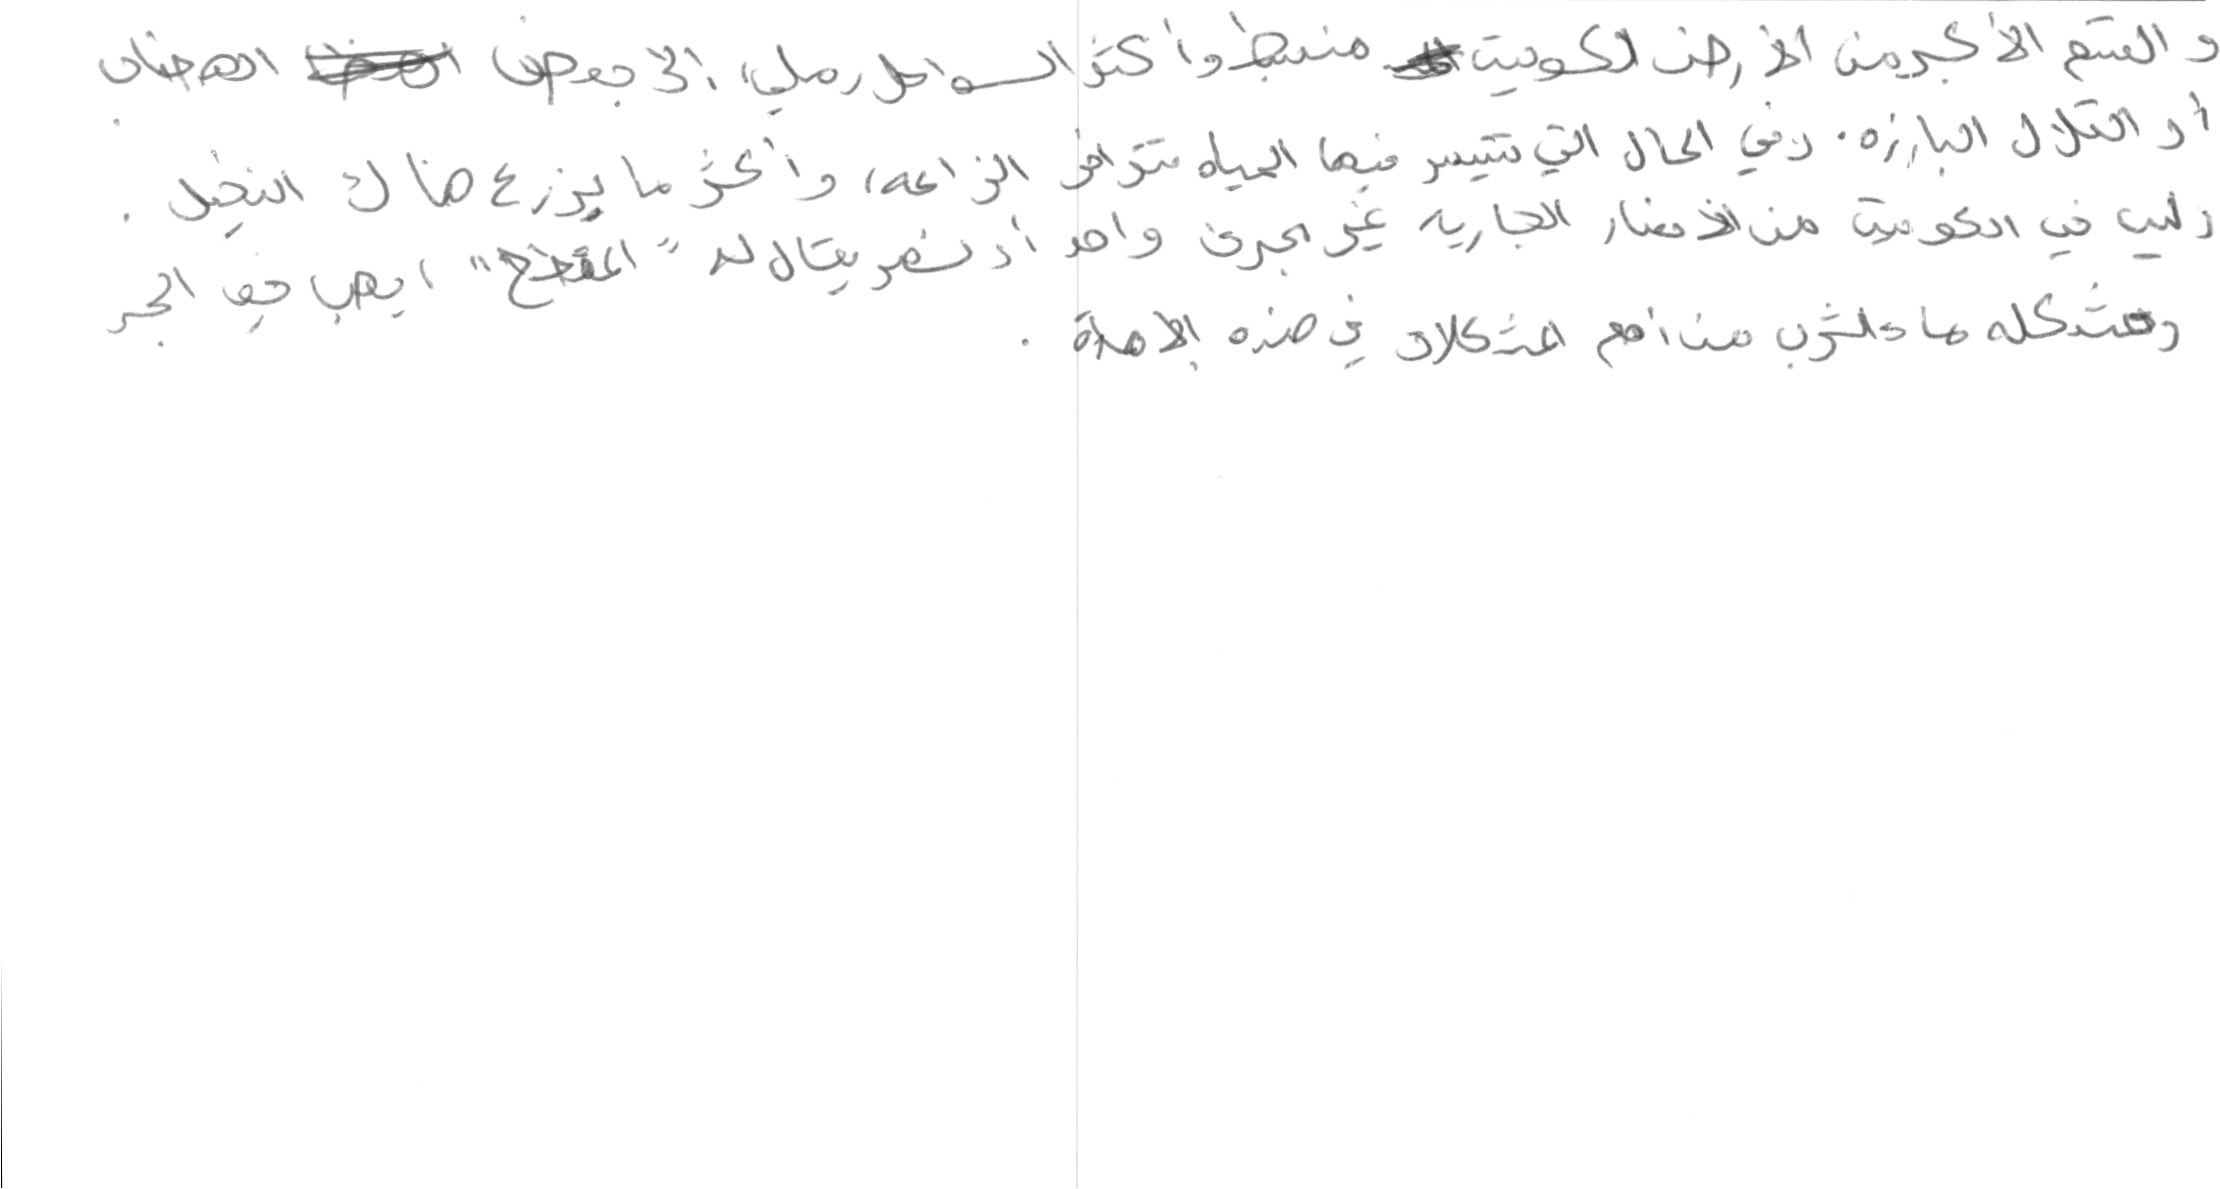 و القسم الأكبر من الأرض الكويت منبسط وأكثر السواحل رملي، إلا بعض الهضاب
أو التلال البارزه. وفي الحال التي تتيسر فيها المياه تتوافر الزراعه، وأكثر ما يزرع هناك النخيل.
وليس في الكويت من الأنهار الجاريه غير مجرى واحد أو نهر يقال له "المقطع"، يصب في البحر
ومشكله ماء الشرب من أهم المشكلات في هذه الإمارة.